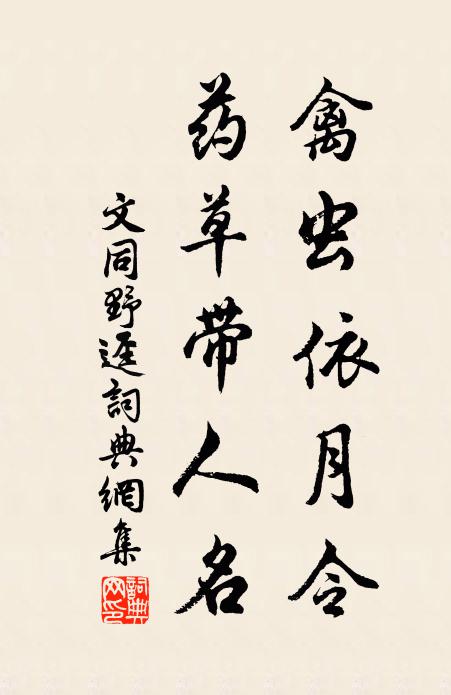 禽虫依月令
药草带人名
文同野迳词典網集
詞典网印